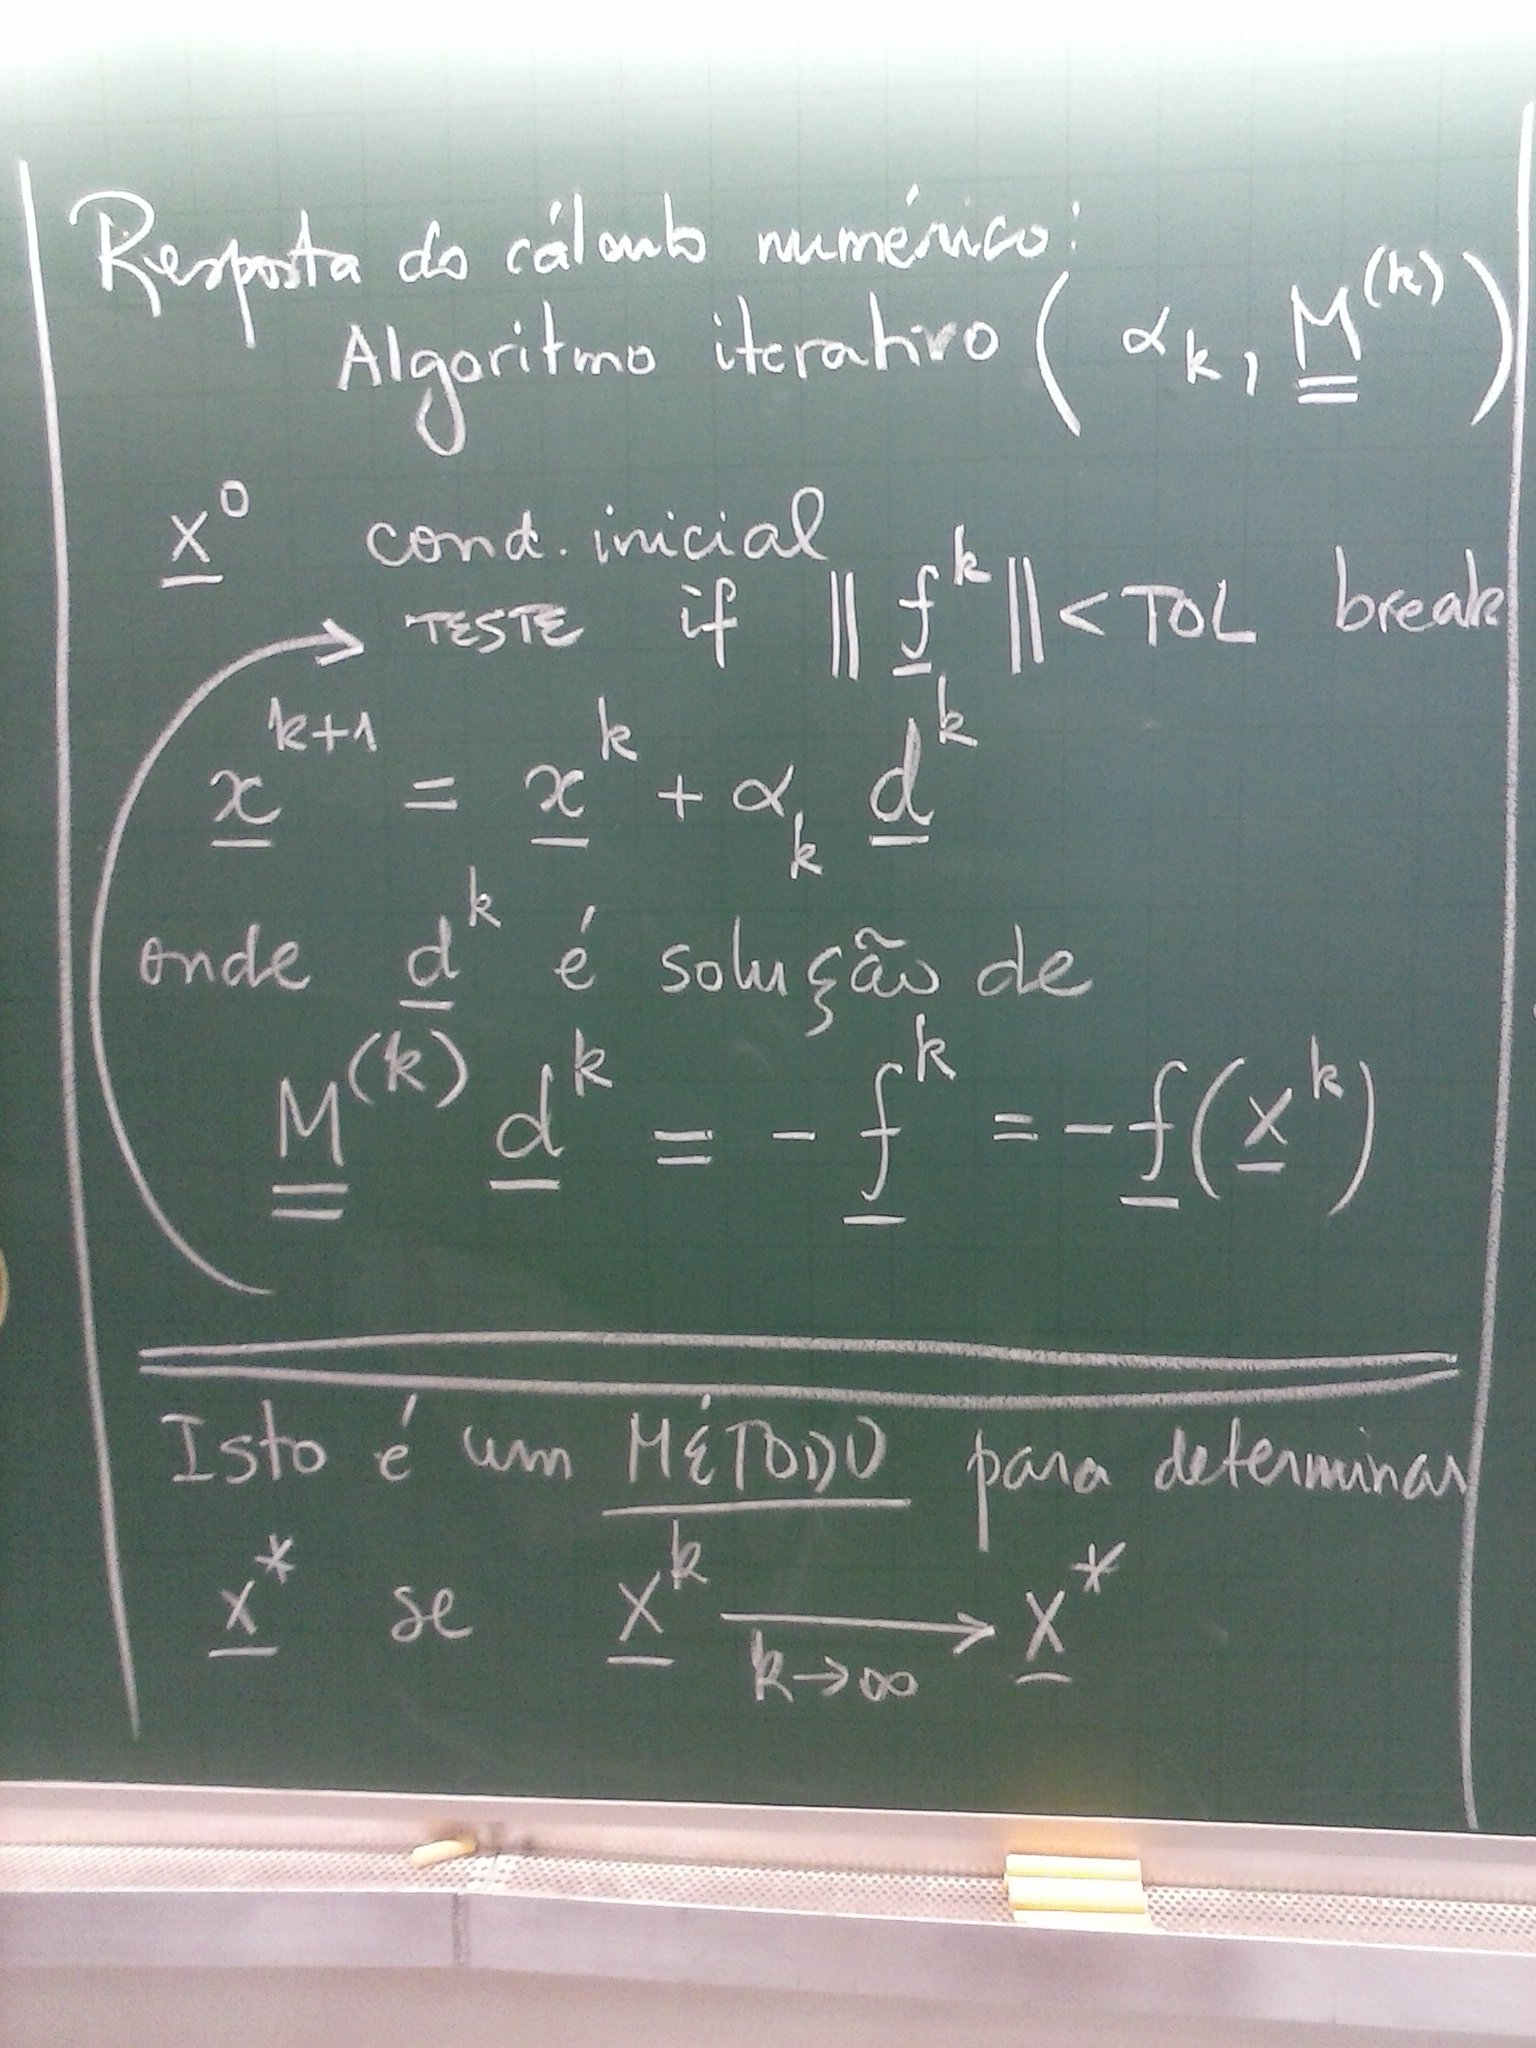 Resposta do cálculo numérico:
Algoritmo iterativo ( α_k, M^(k) )
x^0 cond. inicial
TESTE if ‖ f^k ‖ < TOL break
x^{k+1} = x^k + α_k d^k
onde d^k é solução de
M^(k) d^k = - f^k = - f(x^k)
Isto é um MÉTODO para determinar
x^* se x^k → x^*
k→∞